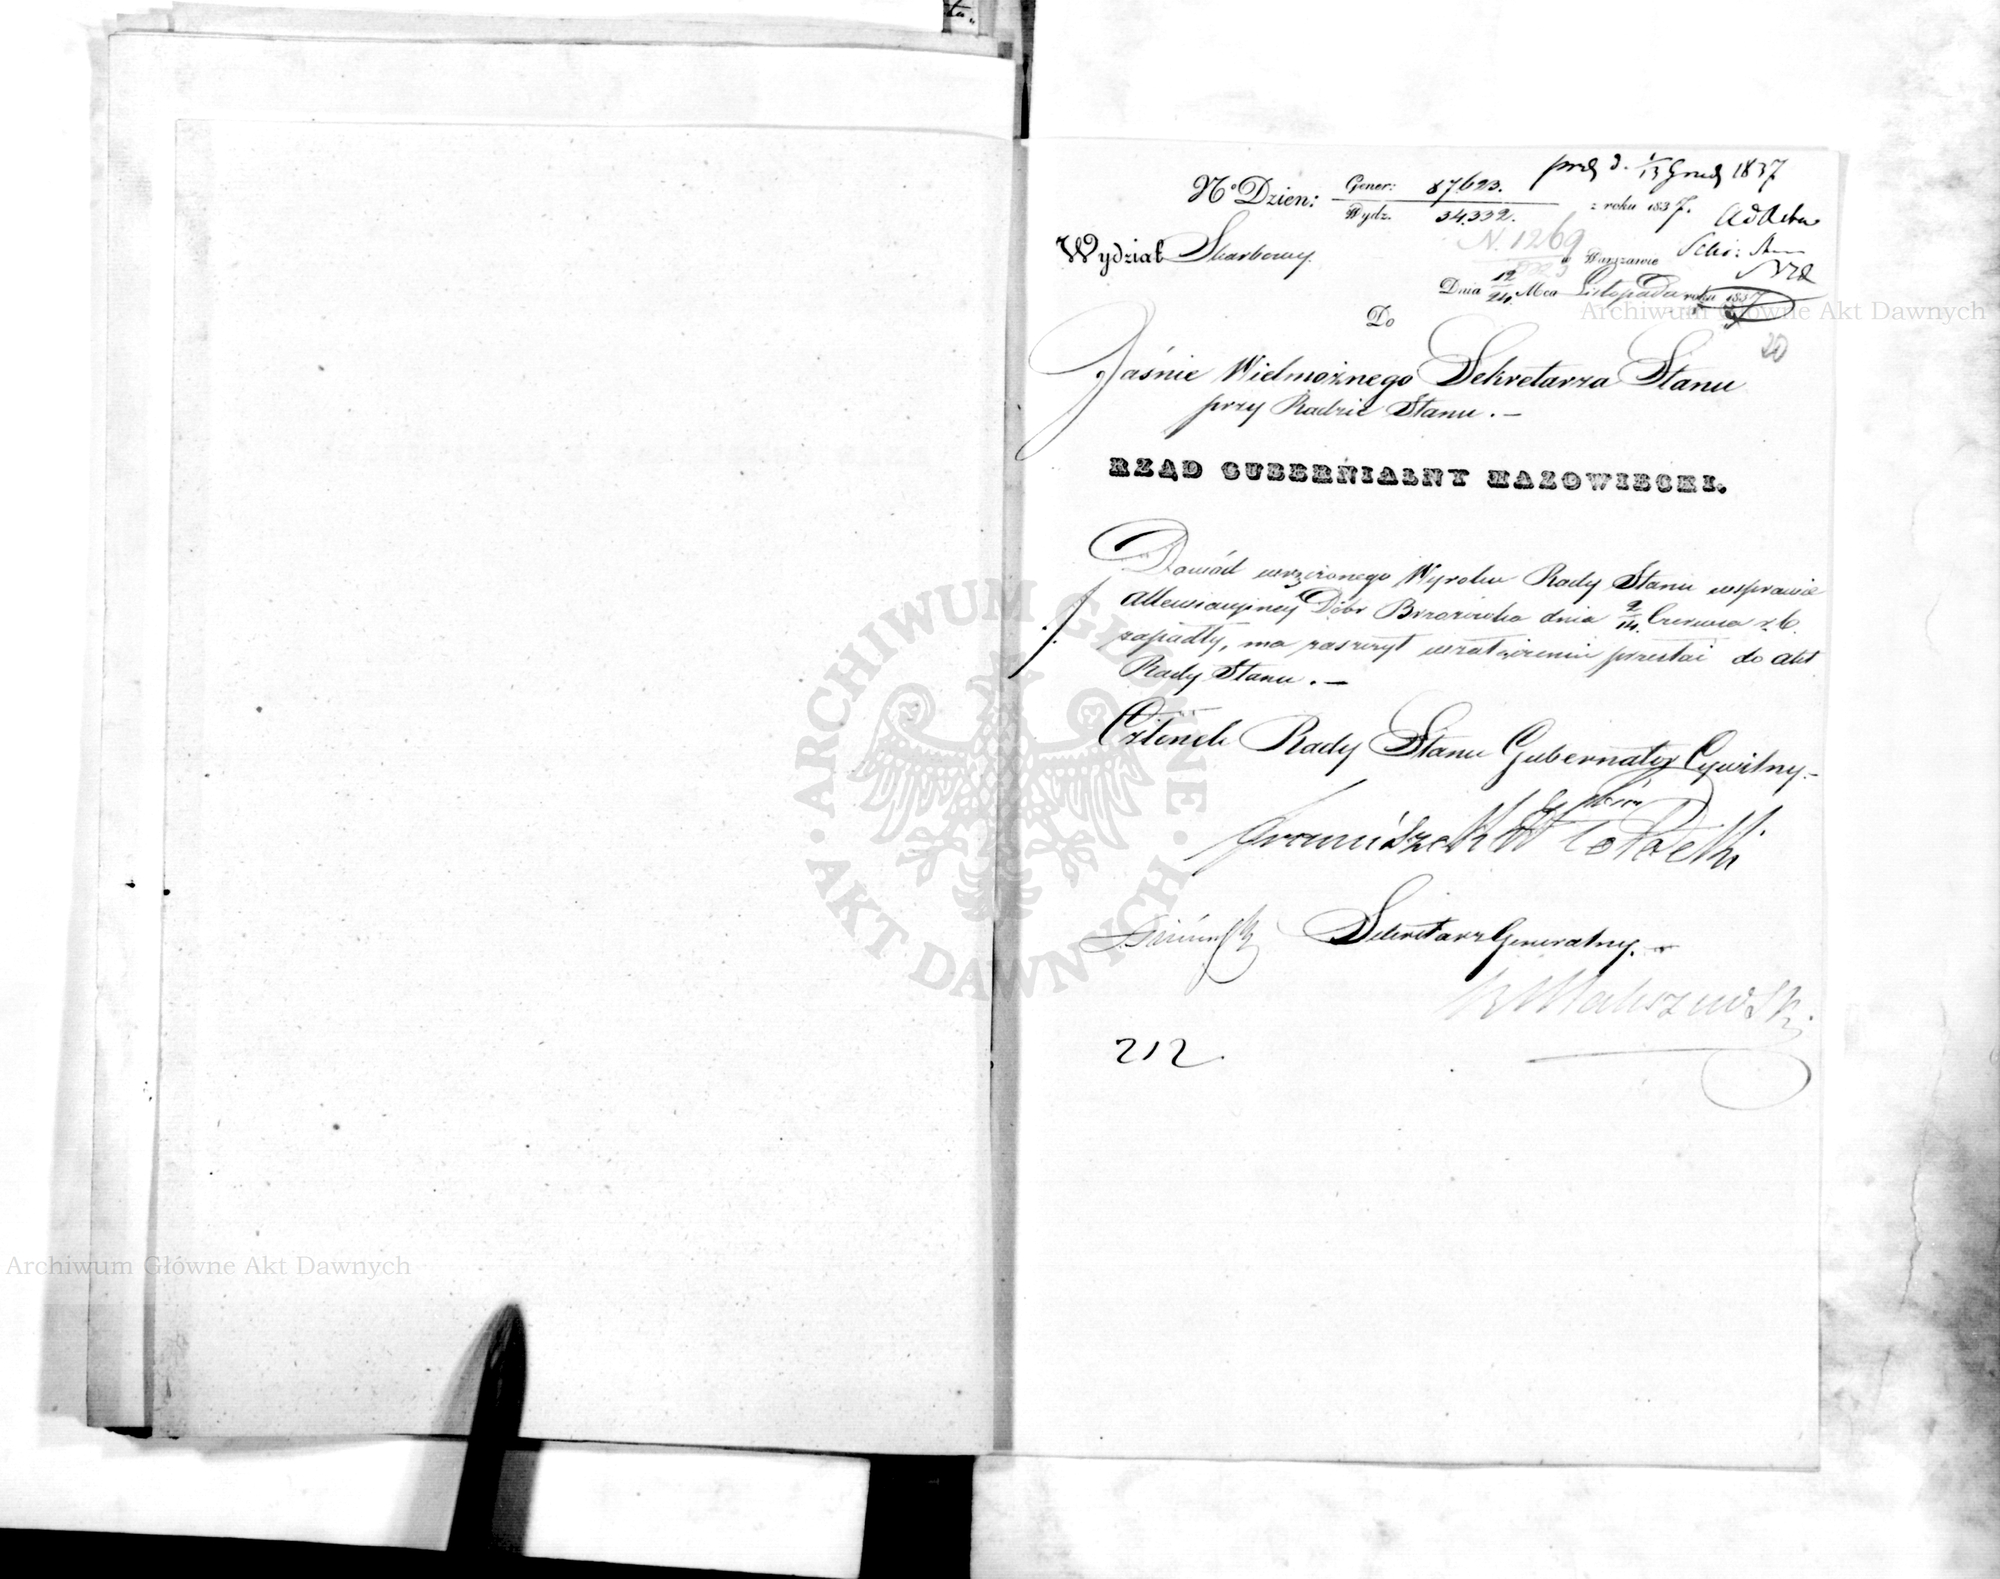 prez d. 1/13 Grud 1837
No Dzien: Gener: 87623.
Wydz. 34332. z roku 1837.
ad Acta
N. 1269
Wydział Skarbowy. w Warszawie
Dnia 12/24. Mca Listopada roku 1837
Do
20
Jaśnie Wielmożnego Sekretarza Stanu
przy Radzie Stanu. —
RZĄD GUBERNIALNY MAZOWIECKI.
Dowód wręczonego Wyroku Rady Stanu w sprawie
allewiacyjney Dóbr Brzozówka dnia 2/14. Czerwca r. b.
zapadły, ma zaszczyt w załączeniu przesłać do akt
Rady Stanu. —
Członek Rady Stanu Gubernator Cywilny —
Franciszek
Sekretarz Generalny. —
212.
ARCHIWUM GŁÓWNE · AKT DAWNYCH ·
Archiwum Główne Akt Dawnych
Archiwum Główne Akt Dawnych